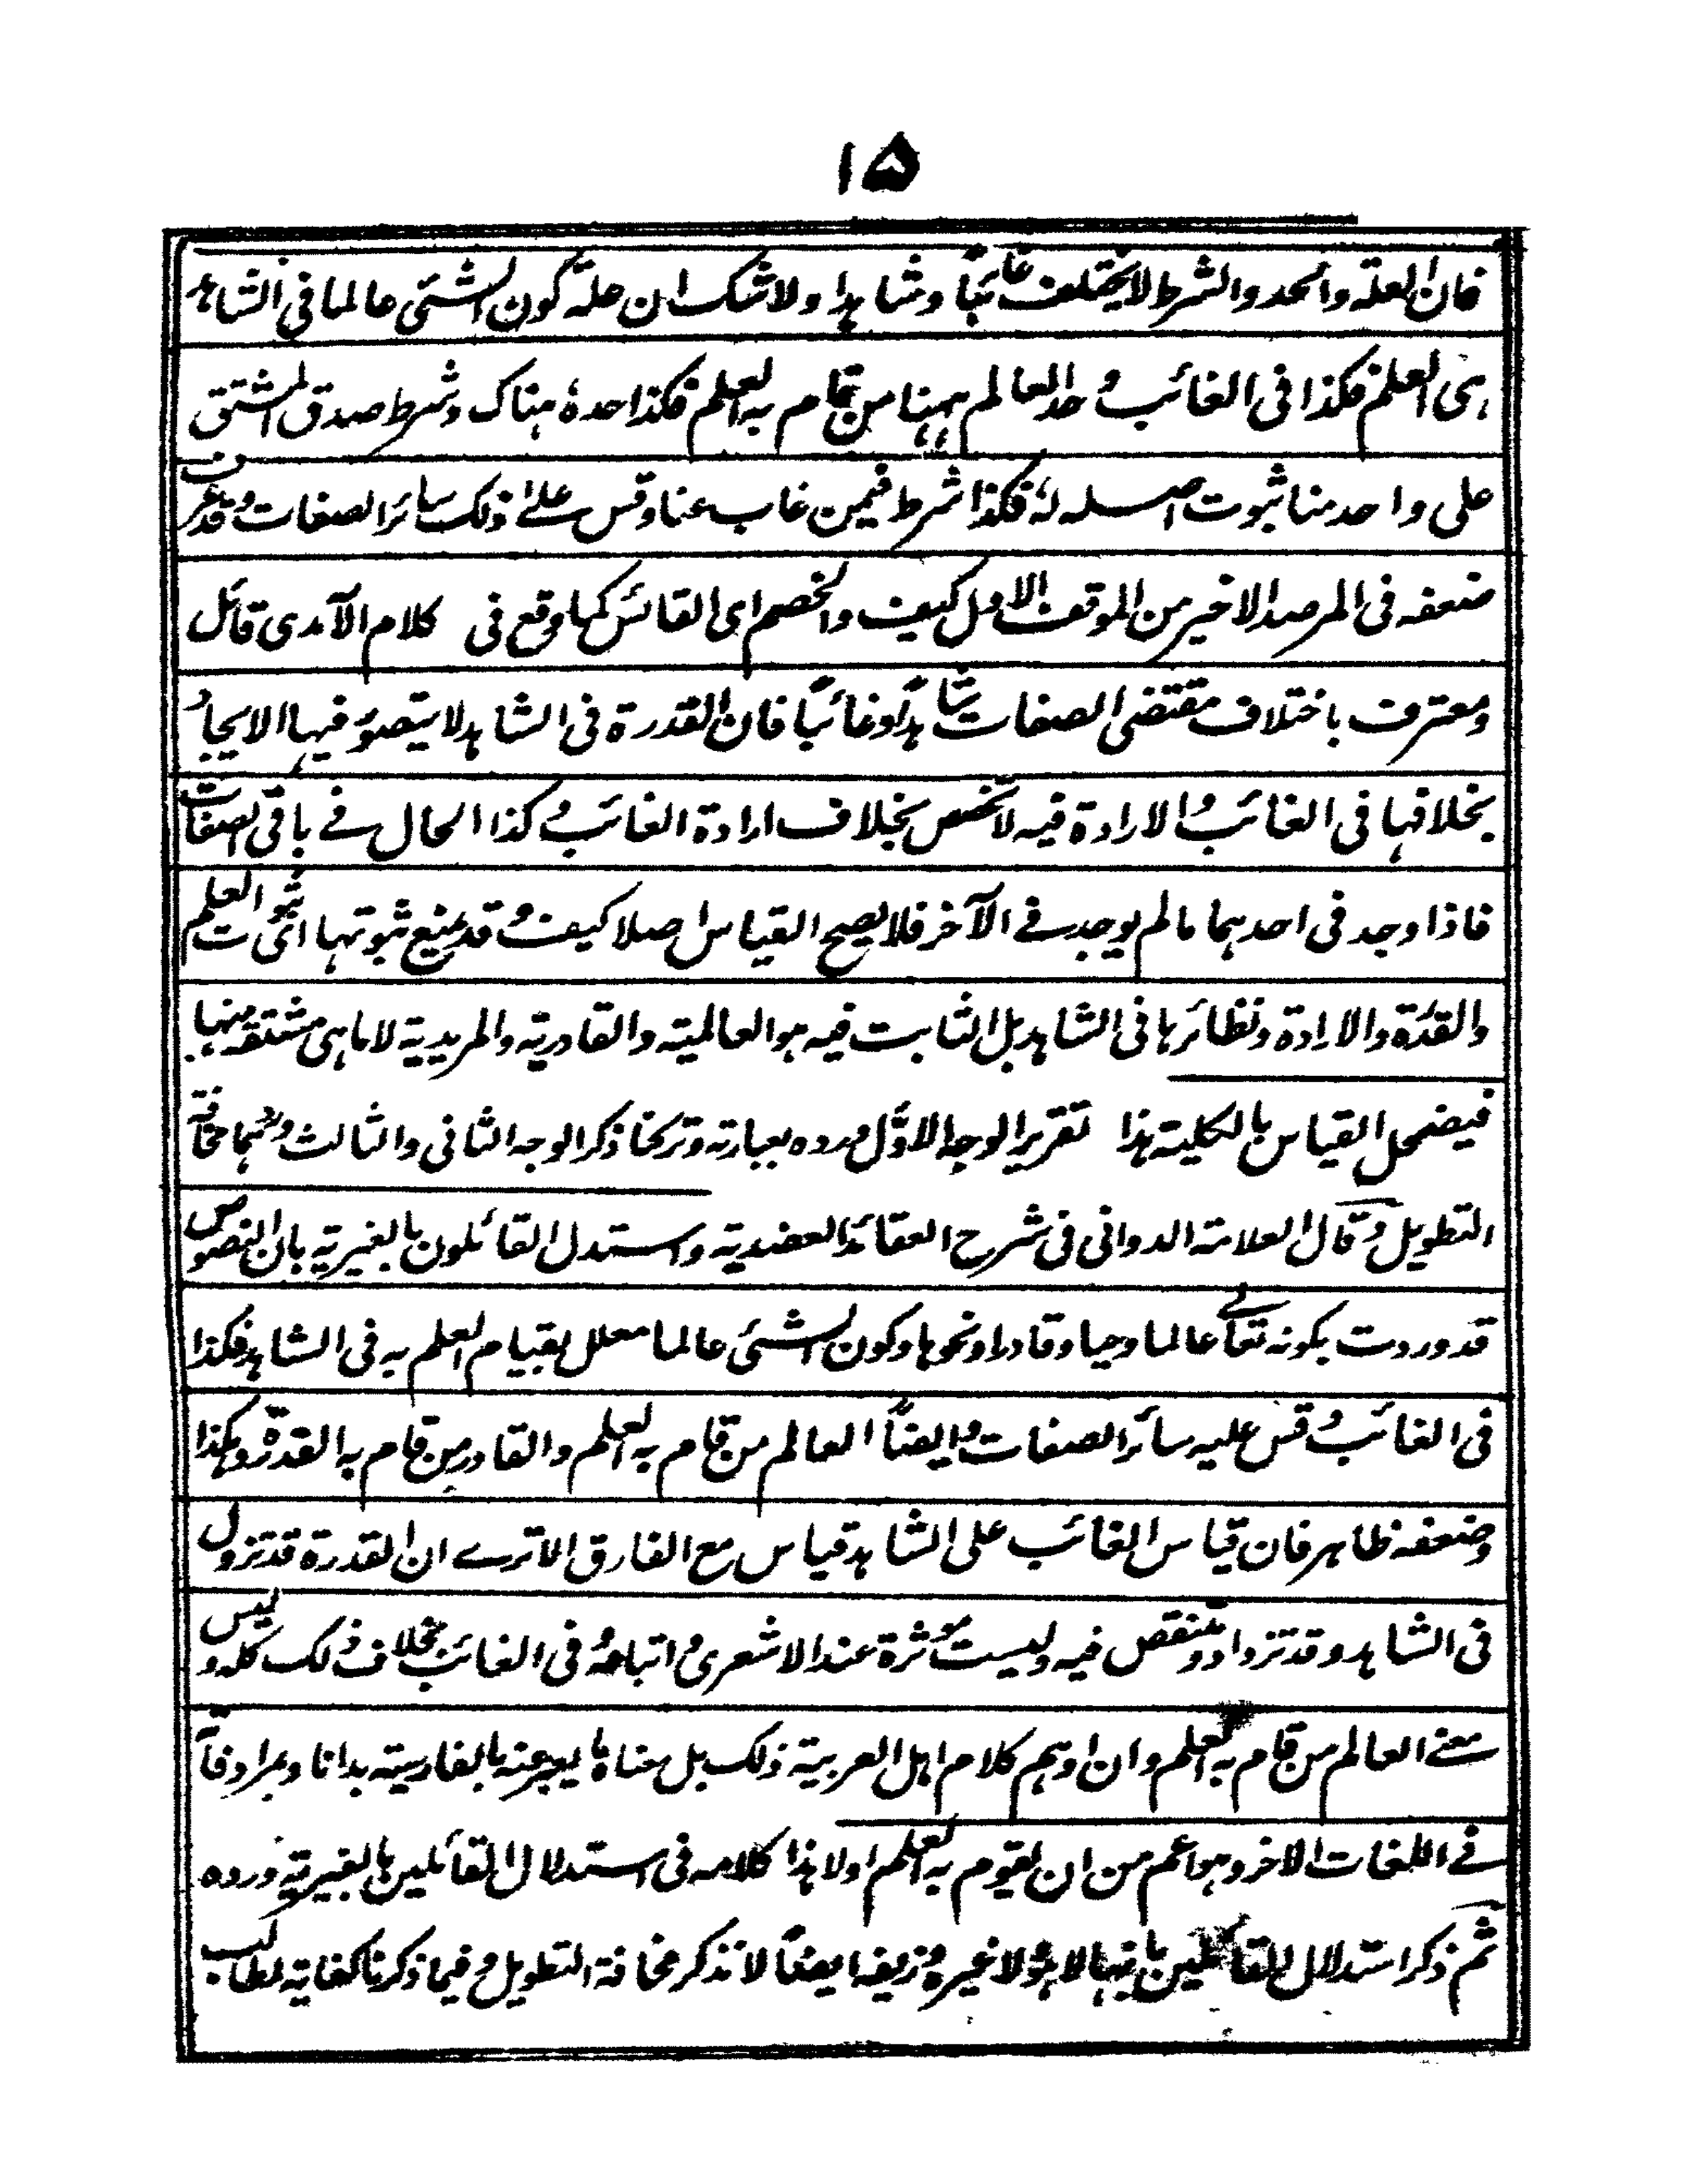 ۱۵
فان العلة والحد والشرط لا يختلف غائبًا وشاهدا ولا شك ان علة كون الشئ عالما فى الشاهد
هى العلم فكذا فى الغائب وحد العالم ههنا من قام به العلم فكذا حده هناك وشرط صدق المشتق
على واحد منا ثبوت اصله له فكذا شرط فيمن غاب عنا وقس على ذلك سائر الصفات وقد عرفت
ضعفه فى المرصد الاخير من الموقف الاول كيف والخصم اى القائس كما وقع فى كلام الآمدى قائل
ومعترف باختلاف مقتضى الصفات شاهدًا وغائبًا فان القدرة فى الشاهد لا يتصور فيها الايجاد
بخلافها فى الغائب والارادة فيه لا تخصص بخلاف ارادة الغائب وكذا الحال فے باقى الصفات
فاذا وجد فى احدهما ما لم يوجد فے الآخر فلا يصح القياس اصلا كيف وقد يمنع ثبوتها اى ثبوت العلم
والقدرة والارادة ونظائرها فى الشاهد بل الثابت فيه هو العالمية والقادرية والمريدية لا ما هى مشتقة منها
فيضمحل القياس بالكلية هذا تقرير الوجه الاوّل ورده بعبارته وتركنا ذكر الوجه الثانى والثالث وردهما مخافة
التطويل وقال العلامة الدوانى فى شرح العقائد العضدية واستدل القائلون بالغيرية بان النصوص
قد وردت بكونه تعالے عالما وحيا وقادرا ونحوها وكون الشئ عالما معلل بقيام العلم به فى الشاهد فكذا
فى الغائب وقس عليه سائر الصفات وايضًا العالم من قام به العلم والقادر من قام به القدرة وهكذا
وضعفه ظاهر فان قياس الغائب على الشاهد قياس مع الفارق الا ترے ان القدرة قد تزول
فى الشاهد وقد تزداد وتنقص فيه وليست مؤثرة عند الاشعرى واتباعه وفى الغائب بخلاف ذلك كله وليس
معنے العالم من قام به العلم وان اوهم كلام اهل العربية ذلك بل معناه ما يعبر عنه بالفارسية بدانا وبمرادفاته
فے اللغات الاخر وهو اعم من ان يقوم به العلم اولا هذا كلامه فى استدلال القائلين بالغيرية ورده
ثم ذكر استدلال القائلين بانها لا هو ولا غيره وزيفه ايضًا لا نذكر مخافة التطويل وفيما ذكرنا كفاية لطالب